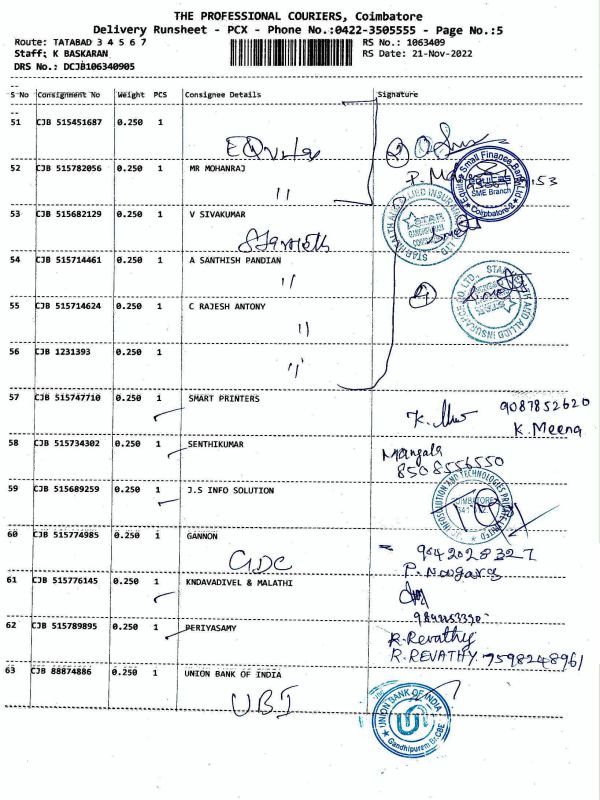 THE PROFESSIONAL COURIERS, Coimbatore
Delivery Runsheet - PCX - Phone No.:0422-3505555 - Page No.:5
Route: TATABAD 3 4 5 6 7 RS No.: 1063409
Staff: K BASKARAN RS Date: 21-Nov-2022
DRS No.: DCJB106340905
S No Consignment No Weight PCS Consignee Details Signature
51 CJB 515451687 0.250 1
52 CJB 515782056 0.250 1 MR MOHANRAJ
Equitas Small Finance Bank Ltd
SME Branch
Coimbatore-2
53 CJB 515682129 0.250 1 V SIVAKUMAR
STAR HEALTH AND ALLIED INSURANCE CO. LTD.
STAR
54 CJB 515714461 0.250 1 A SANTHISH PANDIAN
55 CJB 515714624 0.250 1 C RAJESH ANTONY
STAR HEALTH AND ALLIED INSURANCE CO. LTD.
56 CJB 1231393 0.250 1
57 CJB 515747710 0.250 1 SMART PRINTERS
9087852620
K. Meena
58 CJB 515734302 0.250 1 SENTHIKUMAR
Mangala
8508556550
59 CJB 515689259 0.250 1 J.S INFO SOLUTION
60 CJB 515774985 0.250 1 GANNON
GDC
9042028327
61 CJB 515776145 0.250 1 KNDAVADIVEL & MALATHI
62 CJB 515789895 0.250 1 PERIYASAMY
R. Revathy
R. REVATHY 7598248961
63 CJB 88874886 0.250 1 UNION BANK OF INDIA
UBI
UNION BANK OF INDIA
Gandhipuram Br.CBE